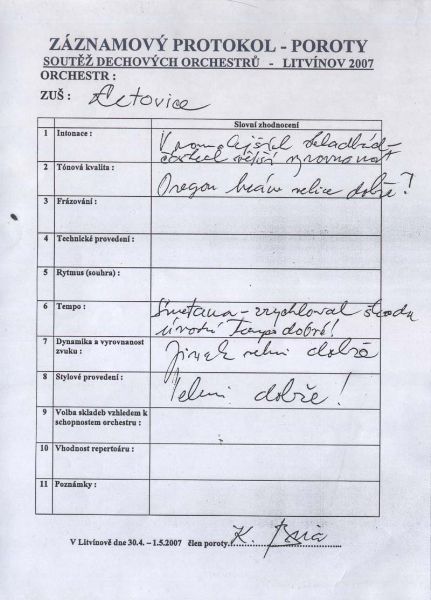 ZÁZNAMOVÝ PROTOKOL - POROTY
SOUTĚŽ DECHOVÝCH ORCHESTRŮ - LITVÍNOV 2007
ORCHESTR :
ZUŠ : Letovice
Slovní zhodnocení
1 Intonace : V pomalejších skladbách
větší vyrovnanost
2 Tónová kvalita :
Oregon hráno velice dobře!
3 Frázování :
4 Technické provedení :
5 Rytmus (souhra) :
6 Tempo : Smetana - zrychloval škoda
úvodní tempo dobré!
7 Dynamika a vyrovnanost
zvuku : Jinak velmi dobrá
8 Stylové provedení : Velmi dobře!
9 Volba skladeb vzhledem k
schopnostem orchestru :
10 Vhodnost repertoáru :
11 Poznámky :
V Litvínově dne 30.4. – 1.5.2007 člen poroty K.